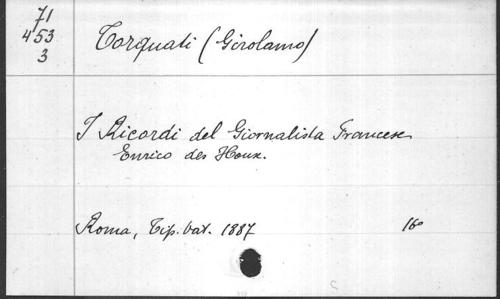 71
453
3
Torquati (Girolamo)
I Ricordi del Giornalista Francese
Enrico des Houx.
Roma, Tip. vat. 1887 16º